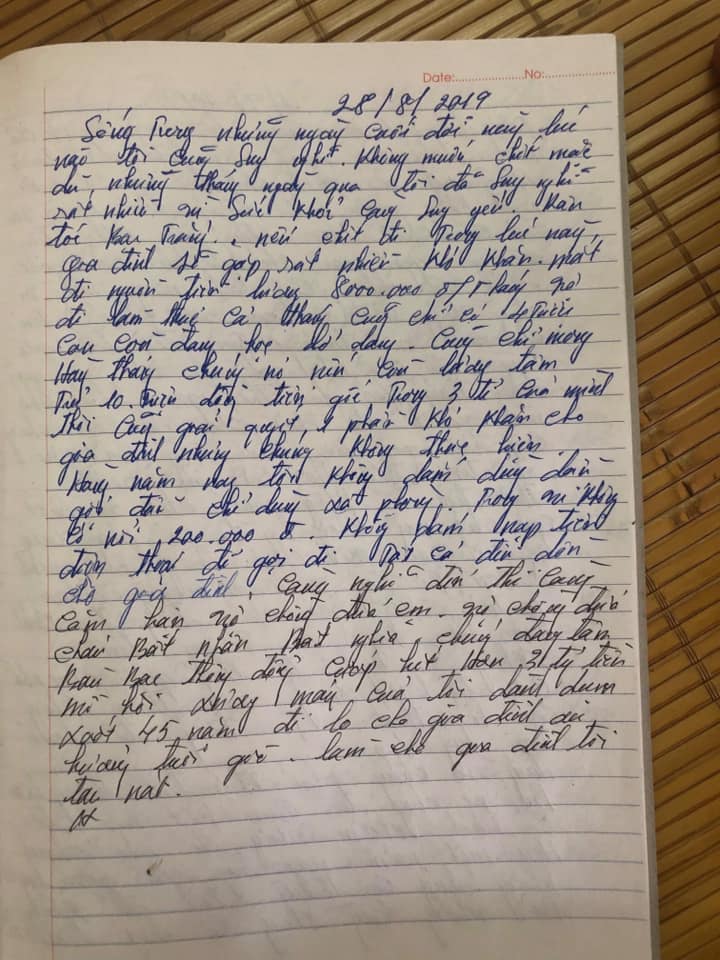 Date:..................No:..................
28/8/2019
Sống Trong những ngày cuối đời này lúc
nào tôi cũng Suy nghĩ. Không muốn chết mặc
dù những tháng ngày qua tôi đã Suy nghĩ
rất nhiều vì Sức Khỏe Càng Suy yếu.
nếu chết đi Trong lúc này,
gia đình sẽ gặp rất nhiều Khó Khăn. mất
đi nguồn tiền lương 8000.000 đ/Tháng vợ
đi làm thuê Cả tháng Cũng chỉ có 4 Triệu
Con Còn đang học dở dang. Cũng chỉ mong
Hàng tháng chúng nó nếu Còn lương tâm
Trả 10 Triệu đồng tiền gốc Trong 3 tỉ Của mình
Thôi Cũng giải quyết 1 phần Khó Khăn cho
gia đình nhưng chúng Không thực hiện
Hàng năm nay tôi Không dám dùng dầu
gội đầu chỉ dùng xà phòng. Trong ví Không
có nổi 200.000 đ. Không dám nạp tiền
điện thoại để gọi đi Tất cả điều dồn
cho gia đình. Càng nghĩ đến thì Càng
Căm hận vợ chồng đứa em. vợ chồng đứa
cháu Bất nhân Bất nghĩa chúng đang tâm
Bàn Bạc Thông đồng Cướp hết Hơn 3 tỷ tiền
mồ hôi xương máu Của tôi dành dụm
suốt 45 năm để lo cho gia đình an
hưởng tuổi già. làm cho gia đình tôi
tan nát.